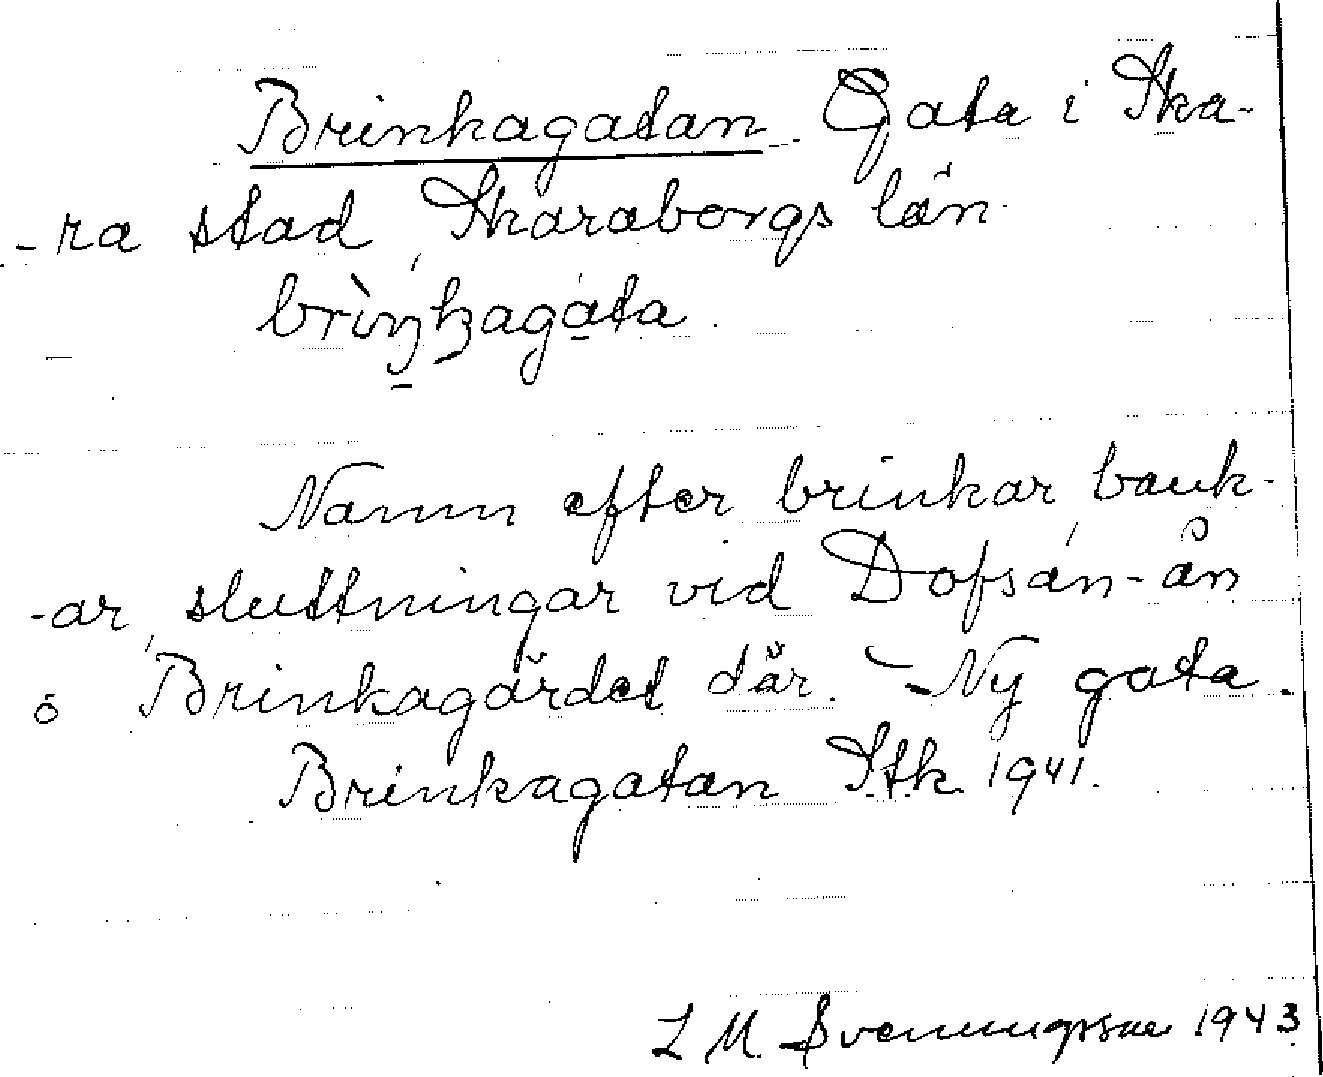 Brinkagatan. Gata i Ska-
-ra stad, Skaraborgs län.
brìŋkagata.
Namn efter brinkar, bank-
-ar, sluttningar vid Dofsån-ån
o Brinkagärdet där. - Ny gata.
Brinkagatan Stk. 1941.
L M. Svenungsson 1943